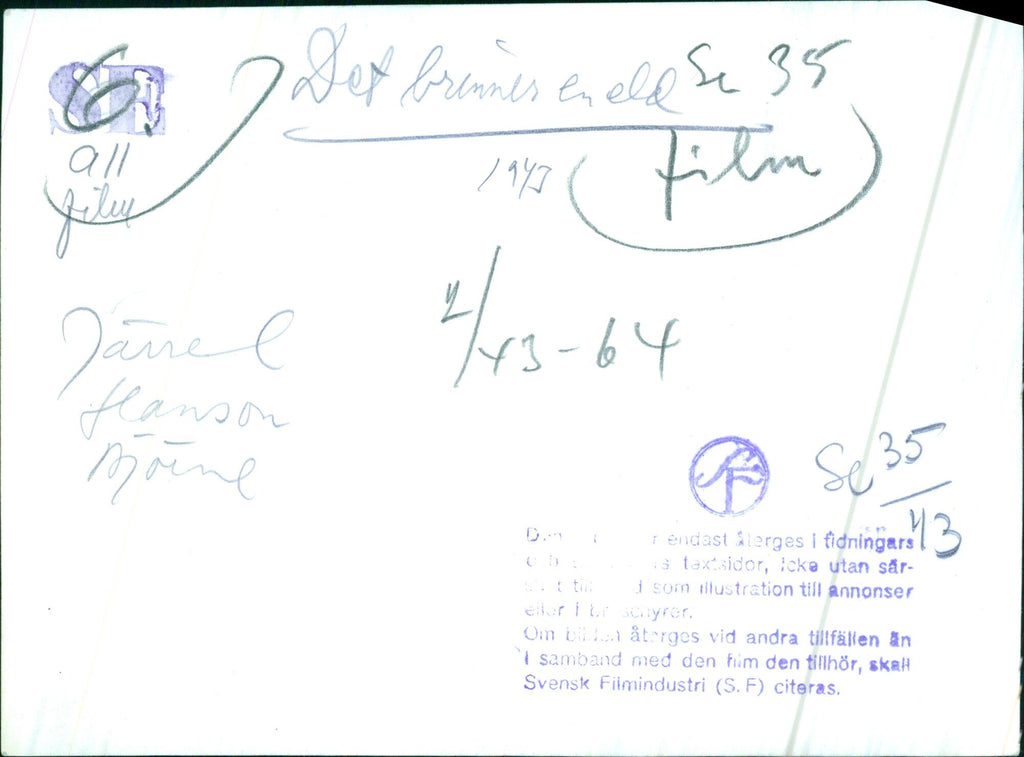 SF
6.
Det brinner en eld Se 35
all
film
1943 (film)
2/43-64
Järrel
Hanson
Björne
SF
Se 35/43
endast återges i tidningars
textsidor, icke utan sär-
som illustration till annonser
eller i
Om bilden återges vid andra tillfällen än
i samband med den film den tillhör, skall
Svensk Filmindustri (S.F) citeras.